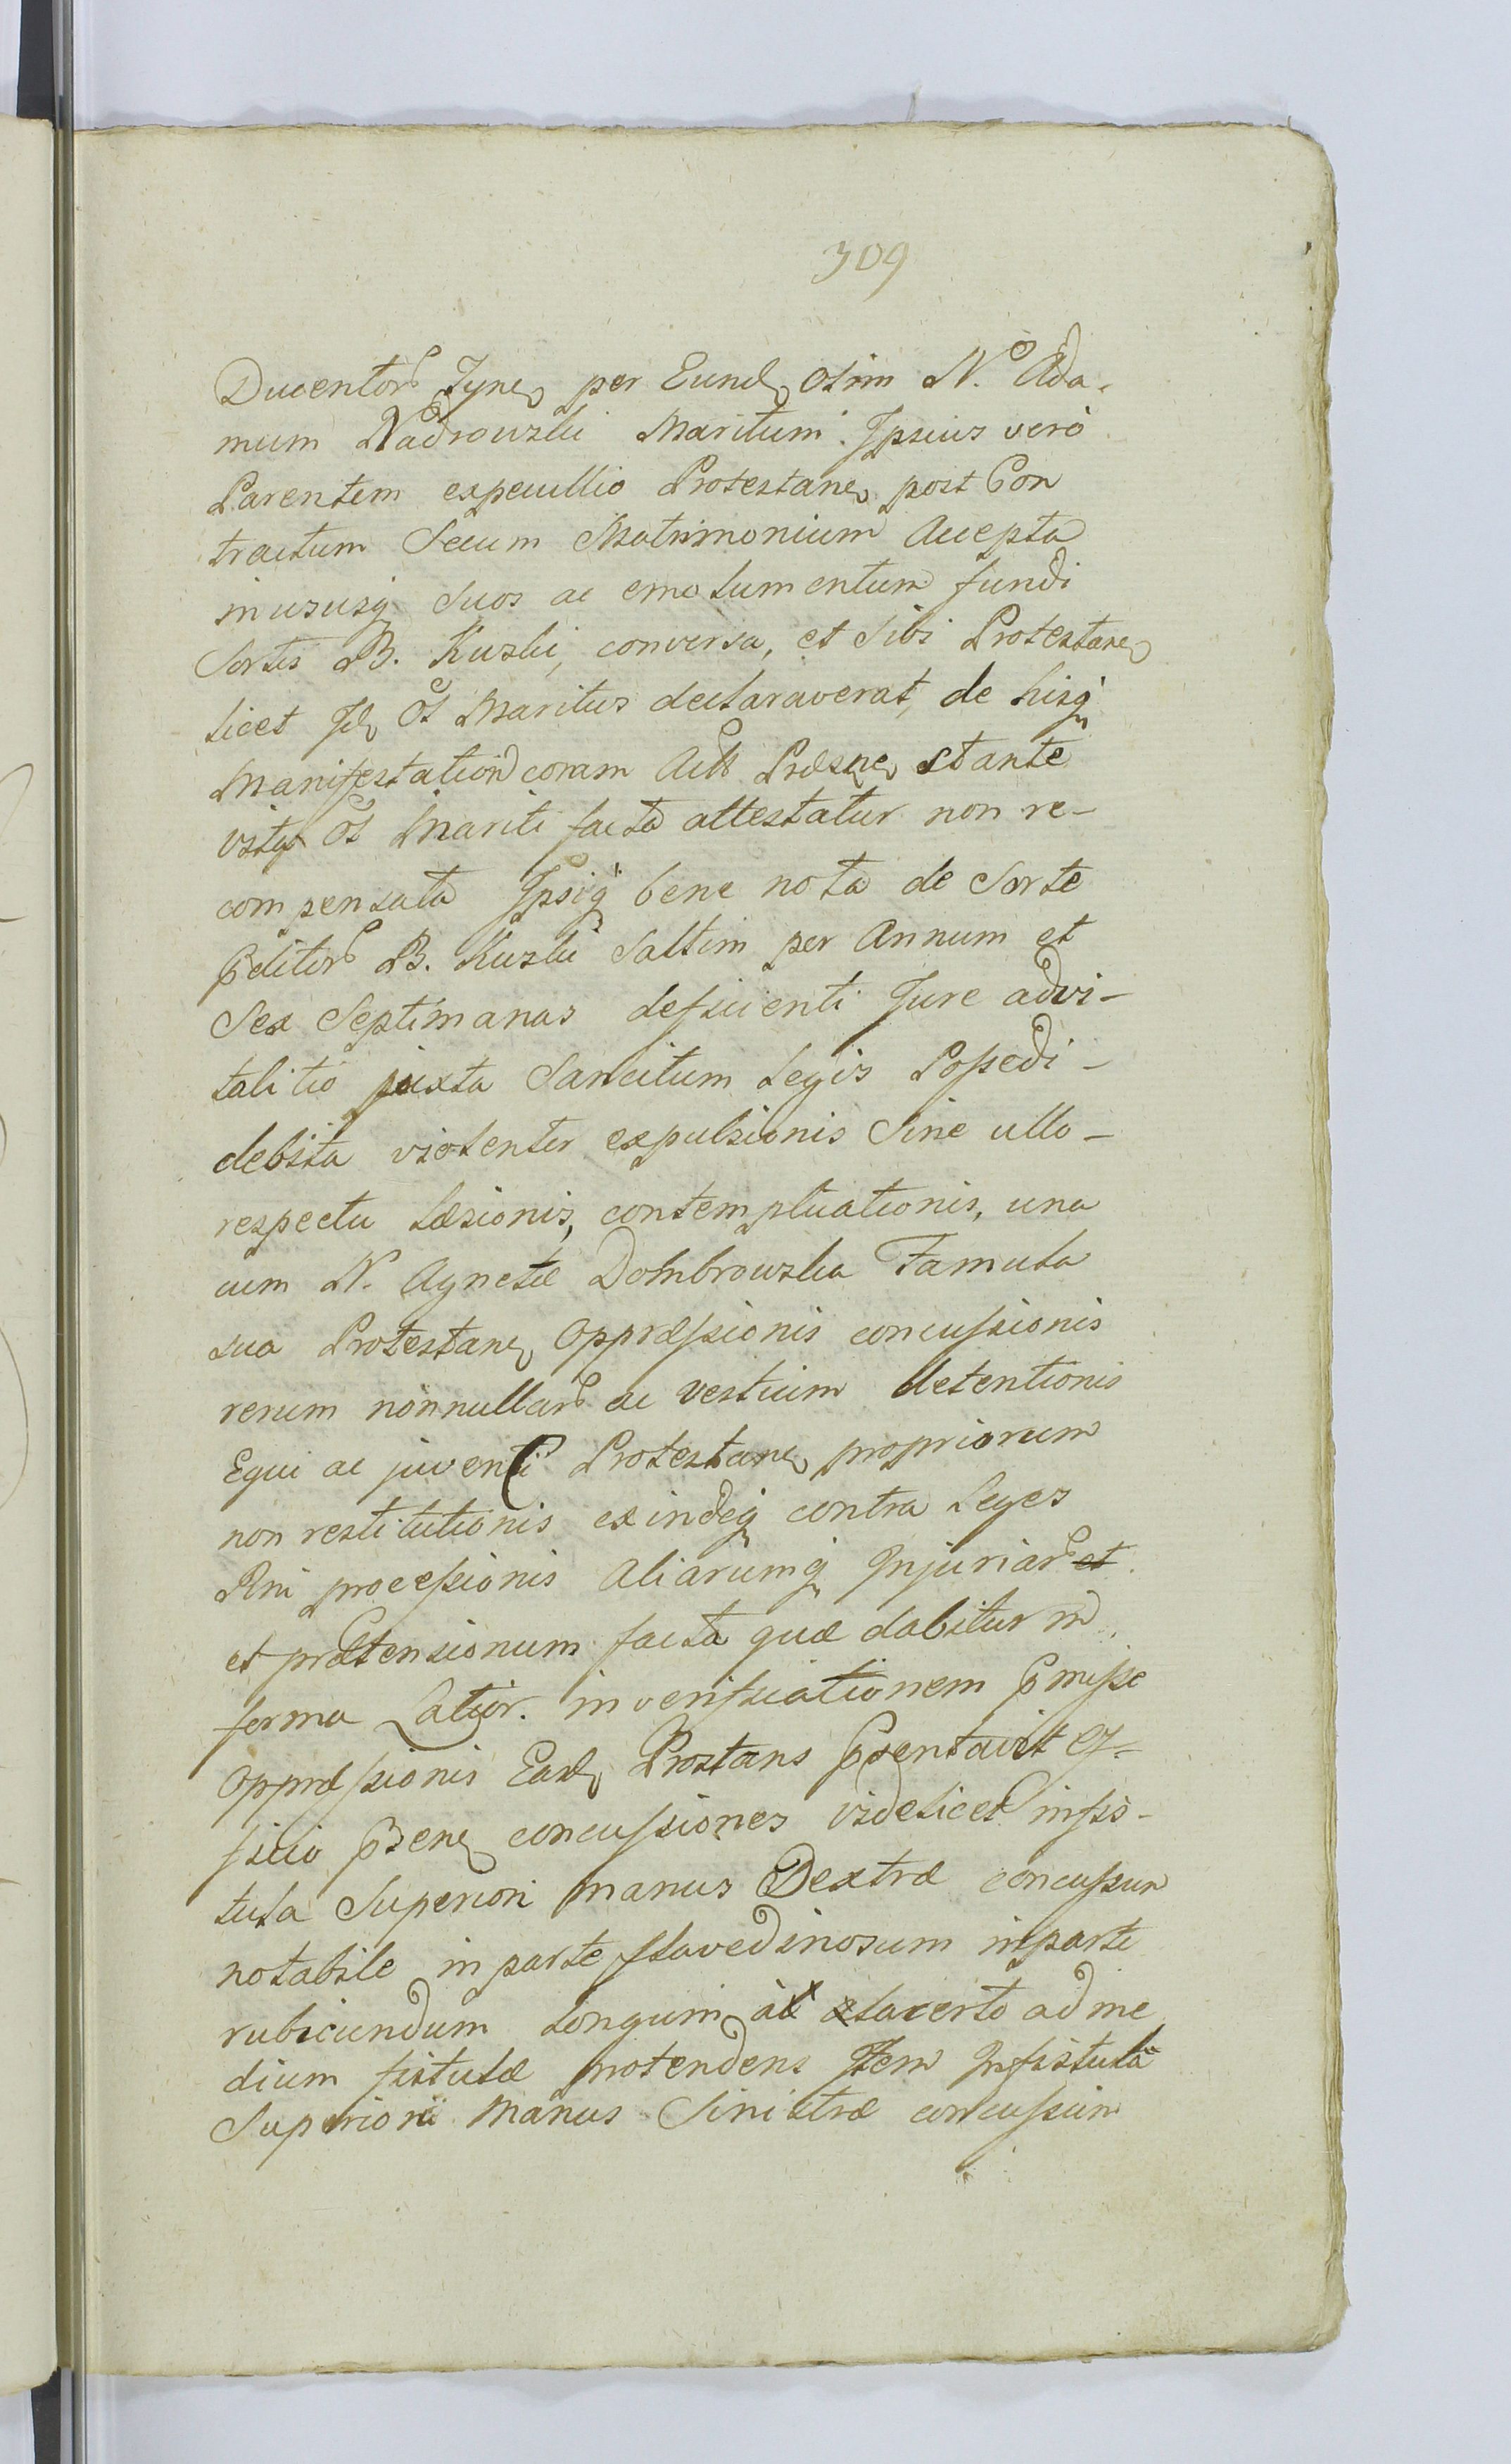 309
Ducentor Tynę per Eund Olim N. Ada-
mum Nadrowski Maritum Ipsius verò
Parentem expecullio Protestanę post Con
tractum Secum Matrimonium Accepta
inususq suos ac emolumentum fundi
Sortis B. Kuski, conversa, et Sibi Protestanę
licet Id Ol Maritus declaraverat, de hisq
Manifestation coram Actis Præsnę stante
vita Ol Mariti facta attestatur non re-
compensata Ipsiq bene nota de Sorte
B. Kuski Saltim per Annum et
Sex Septimanas deficienti Jure advi-
talitio juxta Sancitum Legis Possedi-
debita violenter expulsionis Sine ullo-
respectu Læsionis, contempluationis, una
cum N. Agnete Dombrowska Famula
sua Protestanę Oppræssionis concussionis
rerum nonnullar ac vestium detentionis
Equi ac juvenci Protestanę propriorum
non restitutionis exindeq contra Leges
Rni processionis Aliarumq Injuriar et
et prætensionum facta quæ dabitur in
forma Latior. in verificationem pmisse
Oppræssionis Ead Prostans pxentavit Of-
ficio psenę concussiones videlicet infis-
tula Superiori manus Dextræ concussum
notabile in parte flavedinosum inparte
rubicundum Longum à lacerto ad me
dium fistulæ protendens Item Infistula
Superiori Manus Sinistræ concussum